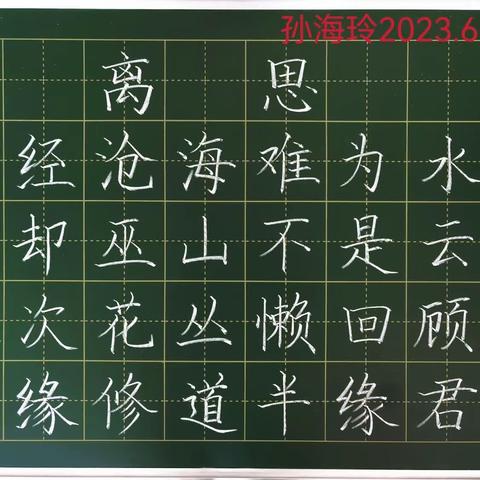 孙海玲2023.6
离思
经沧海难为水
却巫山不是云
次花丛懒回顾
缘修道半缘君